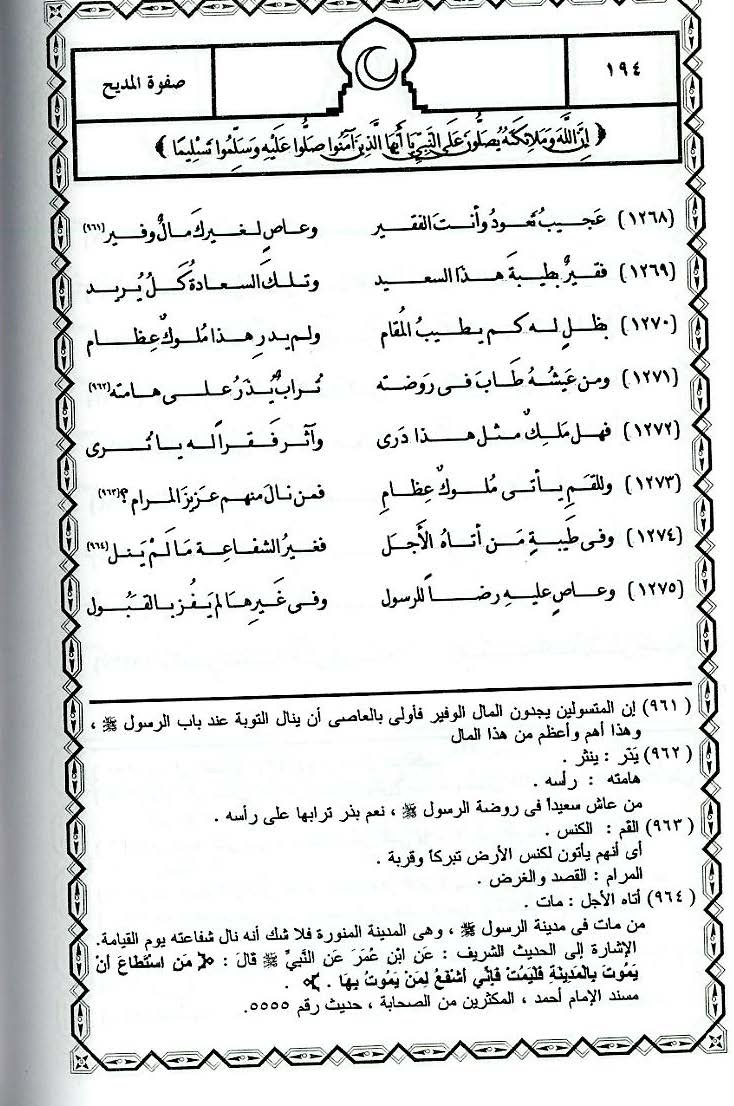 ١٩٤
صفوة المديح
﴿ إِنَّ اللَّهَ وَمَلَائِكَتَهُ يُصَلُّونَ عَلَى النَّبِيِّ يَا أَيُّهَا الَّذِينَ آمَنُوا صَلُّوا عَلَيْهِ وَسَلِّمُوا تَسْلِيمًا ﴾
(١٢٦٨) عَجيبٌ تَعودُ وأنت الفقير وعاصٍ لغيرك مالٌ وفير (٩٦١)
(١٢٦٩) فقيرٌ بطيبةَ هذا السعيد وتلك السعادةُ كَلٌّ يُريد
(١٢٧٠) بظلٍ له كم يطيبُ المُقام ولم يدرِ هذا مُلوكٌ عِظام
(١٢٧١) ومن عَيشُهُ طَابَ فى رَوضته تُرابٌ يُذَرُ على هامته (٩٦٢)
(١٢٧٢) فهل مَلِكٌ مثل هذا دَرى وآثر فَقراً له يا تُرى
(١٢٧٣) وللقمِ يأتى مُلوكٌ عِظامِ فمن نالَ منهم عزيزَ المرام ؟ (٩٦٣)
(١٢٧٤) وفى طَيبةٍ مَن أتاهُ الأَجل فغيرُ الشفاعةِ مَا لَمْ يَنل (٩٦٤)
(١٢٧٥) وعاصٍ عليهِ رضاً للرسول وفى غَيرِها لم يَفُز بالقَبُول
(٩٦١) إن المتسولين يجدون المال الوفير فأولى بالعاصى أن ينال التوبة عند باب الرسول ﷺ ،
وهذا أهم وأعظم من هذا المال
(٩٦٢) يَذَر : ينثر .
هامته : رأسه .
من عاش سعيداً فى روضة الرسول ﷺ ، نعم بذر ترابها على رأسه .
(٩٦٣) القم : الكنس .
أى أنهم يأتون لكنس الأرض تبركاً وقربة .
المرام : القصد والغرض .
(٩٦٤) أتاه الأجل : مات .
من مات فى مدينة الرسول ﷺ ، وهى المدينة المنورة فلا شك أنه نال شفاعته يوم القيامة.
الإشارة إلى الحديث الشريف : عَنِ ابْنِ عُمَرَ عَنِ النَّبِيِّ ﷺ قَالَ : ﴿ مَنِ اسْتَطَاعَ أَنْ
يَمُوتَ بِالْمَدِينَةِ فَلْيَمُتْ فَإِنِّي أَشْفَعُ لِمَنْ يَمُوتُ بِهَا . ﴾ .
مسند الإمام أحمد ، المكثرين من الصحابة ، حديث رقم ٥٥٥٥.